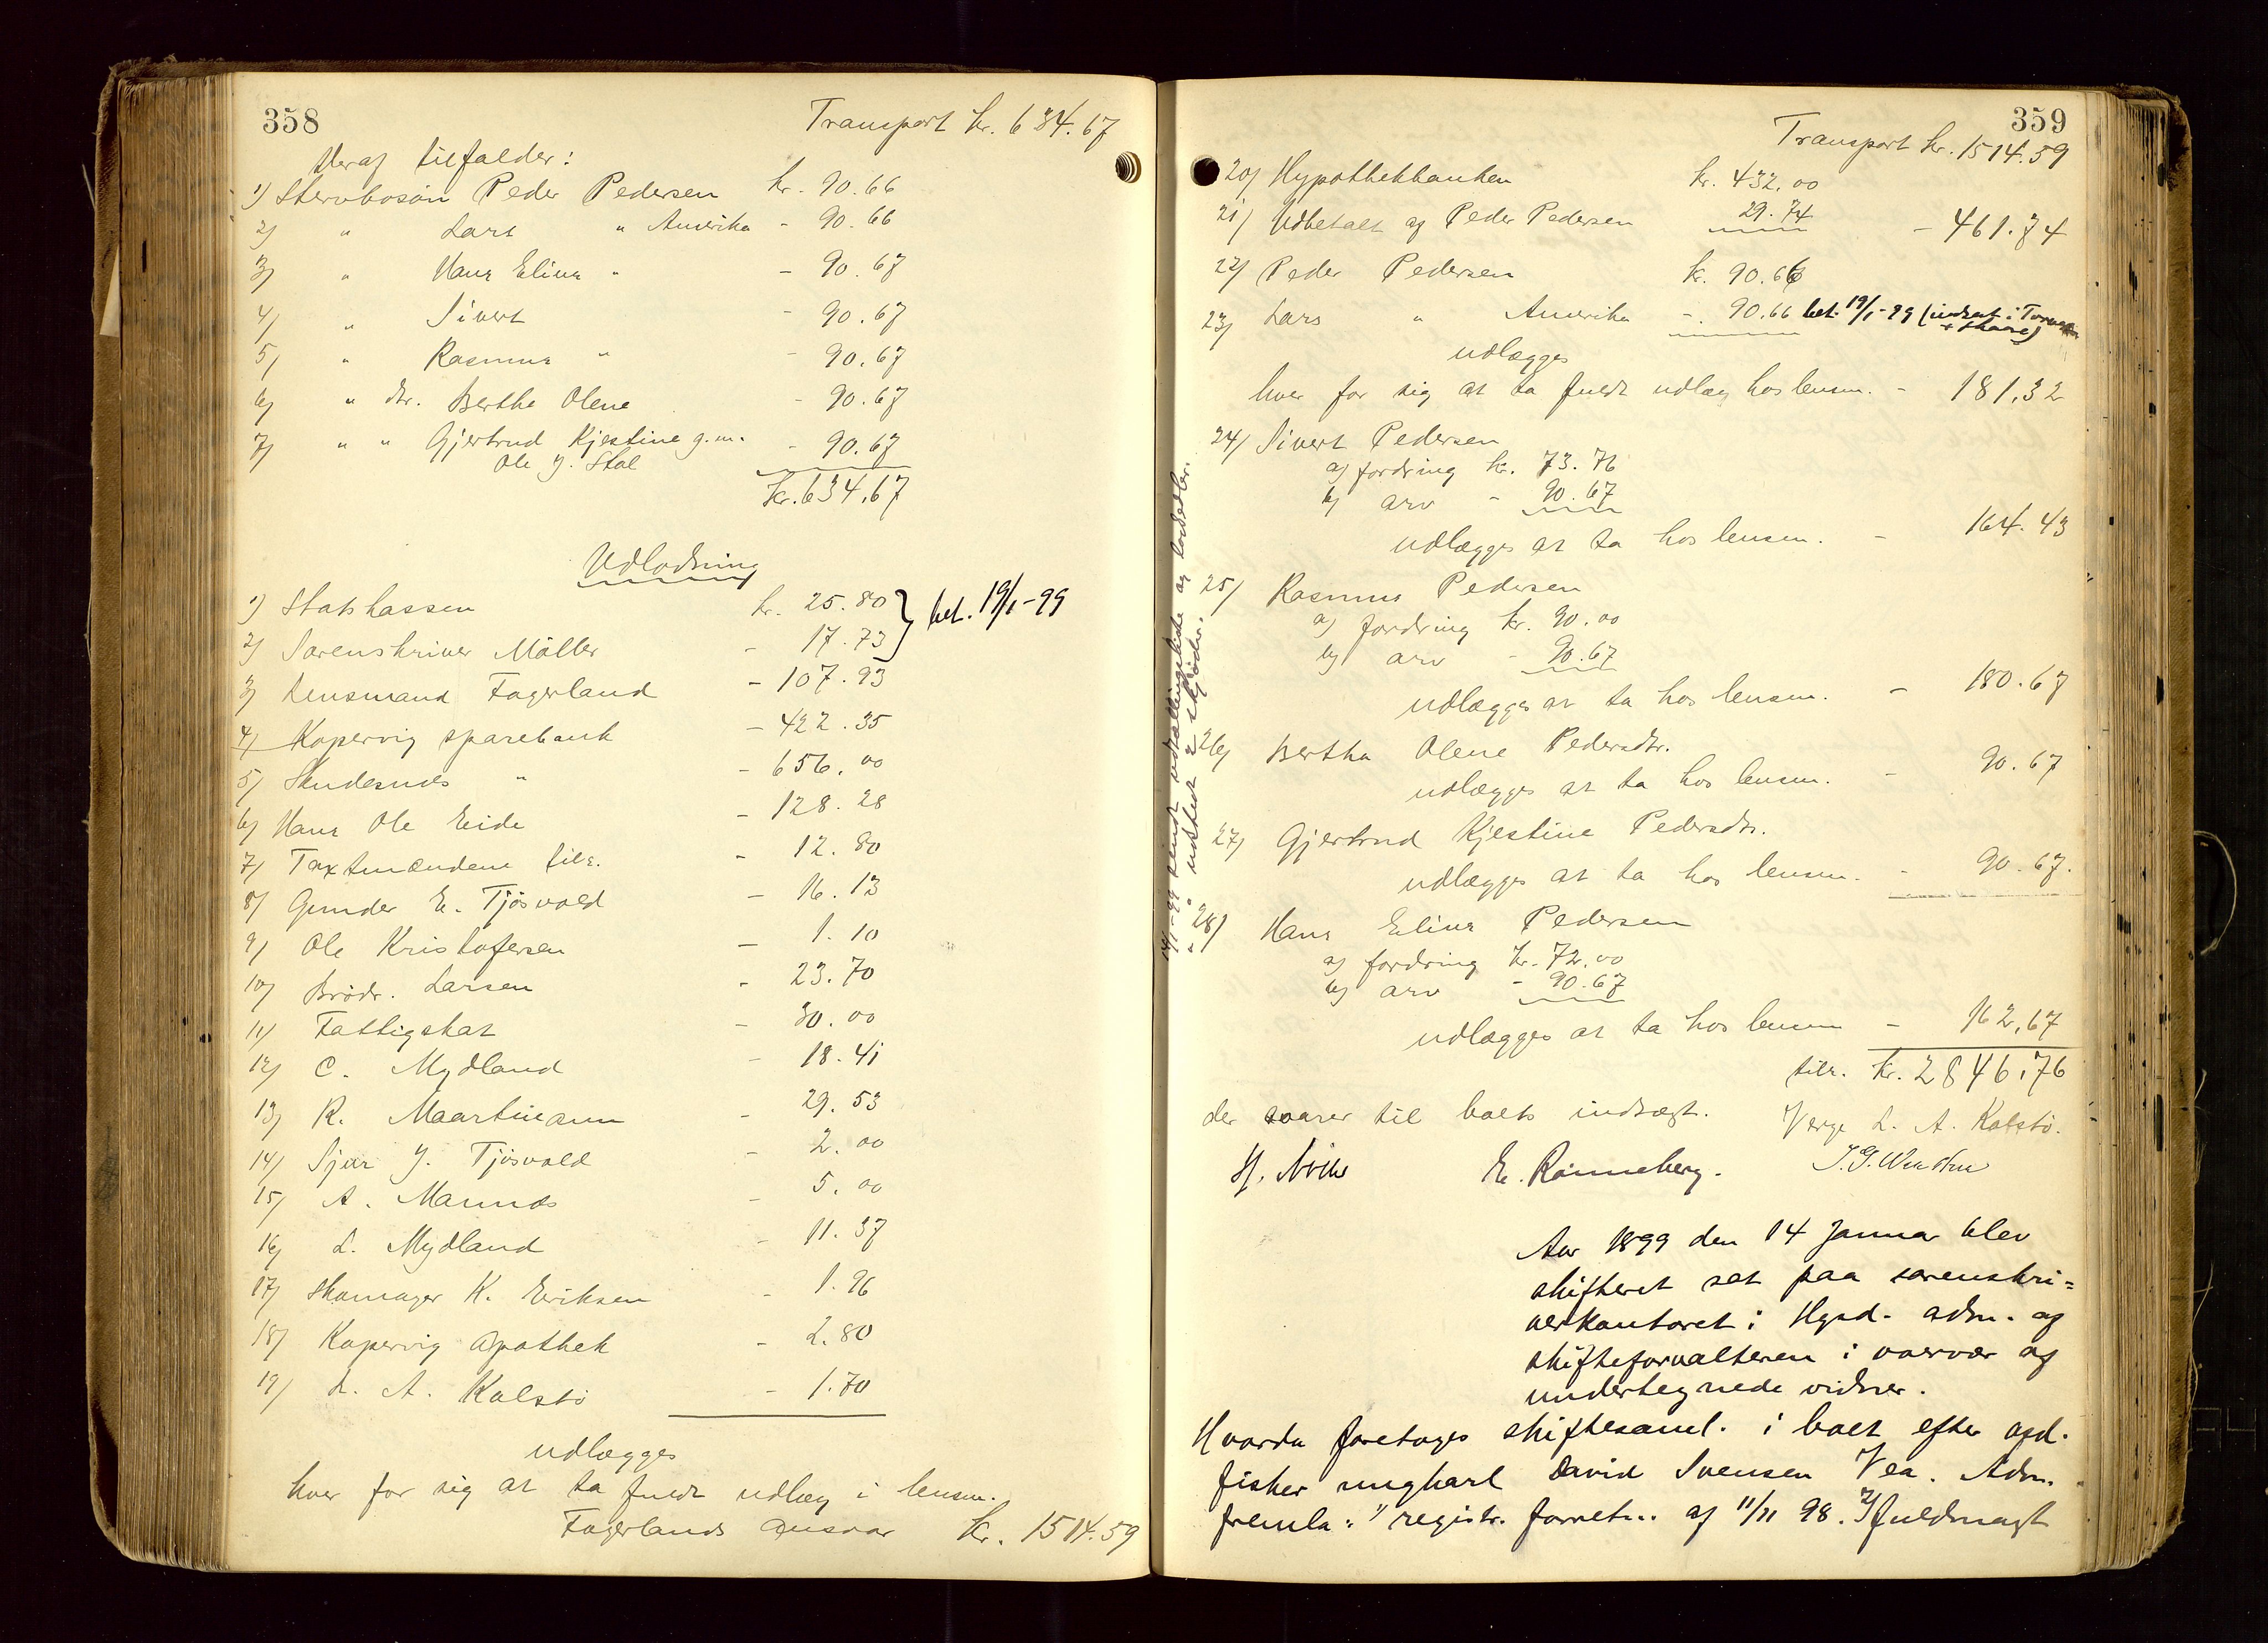 358
Transport kr. 634.67
Heraf tilfalder:
1) Stervbosøn Peder Pedersen kr. 90.66
2) " Lars " Amerika - 90.66
3) " Hans Elias " - 90.67
4) " Sivert - 90.67
5) " Rasmus " - 90.67
6) " dtr. Berthe Olene - 90.67
7) " " Gjertrud Kjestine g.m. - 90.67
Ole J. Stol
kr. 634,67
Udlodning
1) Statskassen kr. 25.80
2) Sorenskriver Møller - 17.73 } bet. 19/1-99
3) Lensmand Fagerland - 107.93
4) Kopervig sparebank - 422.35
5) Skudesnes " - 656.00
6) Hans Ole Eide - 128.28
7) Taxtmændene tils. - 12.80
8) Gunder E. Tjøsvold - 16.13
9) Ole Kristofersen - 1.10
10) Brødr. Larsen - 23.70
11) Fattigskat - 30.00
12) C. Mydland - 18.41
13) R. Maartmann - 29.53
14) Sjur J. Tjøsvold - 2.00
15) A. Mannes - 5.00
16) L. Mydland - 11.37
17) Skomager K. Eriksen - 1.96
18) Kopervig Apothek - 2.80
19) L. A. Kalstø - 1.70
udlægges
hver for sig at ta fuldt udlæg i lensm.
Fagerlands ansvar kr. 1514.59
359
Transport kr. 1514.59
20) Hypothekbanken kr. 432.00
21) Udbetalt af Peder Pedersen 29.74 - 461.74
22) Peder Pedersen kr. 90.66
23) Lars " Amerika - 90.66 bet. 19/1-99 (indsat i
udlægges
hver for sig at ta fuldt udlæg hos lensm. - 181,32
24) Sivert Pedersen
a) fordring kr. 73.76
b) arv - 90.67
udlægges at ta hos lensm. - 164.43
25) Rasmus Pedersen
a) fordring kr. 90.00
b) arv - 90.67
udlægges at ta hos lensm. - 180.67
26) Bertha Olene Pedersdtr.
udlægges at ta hos lensm. - 90.67
27) Gjertrud Kjestine Pedersdtr.
udlægges at ta hos lensm. - 90.67.
28) Hans Elias Pedersen
a) fordring kr. 72.00
b) arv - 90.67
udlægges at ta hos lensm - 162,67
tils. kr. 2846,76
der svarer til boets indtægt. Verge L. A. Kalstø.
E. Rønneberg.
Aar 1899 den 14 Januar blev
skifteret sat paa sorenskri=
verkontoret i Hgsd. adm. af
skifteforvalteren i overvær af
undertegnede vidner.
Hvorda foretoges skiftesaml. i boet efter afd.
fisker ungkarl David Svensen Vea. Adm.
fremla: 1) registr. forretn. af 11/11 98. 2) fuldmagt